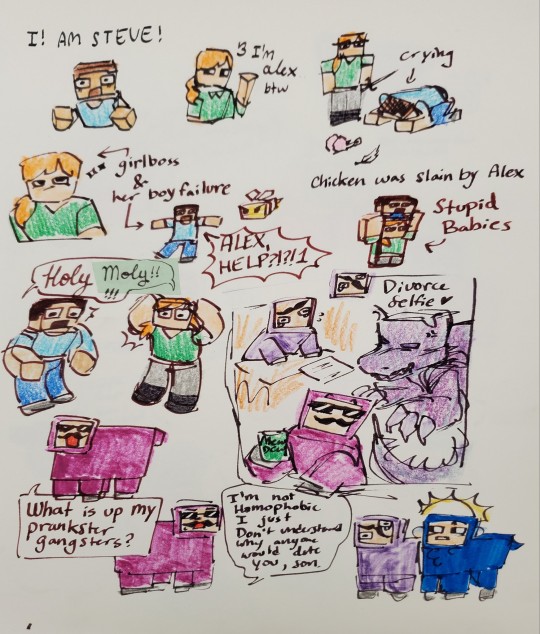 I! AM STEVE!
I'm
alex
btw
crying
girlboss
&
her boyfailure
chicken was slain by Alex
Stupid
Babies
ALEX,
HELP?!?!1
Holy Moly!!
!!!
Divorce
selfie ♥
What is up my
prankster
gangsters?
I'm not
Homophobic
I just
Don't understand
why anyone
would date
you, son.